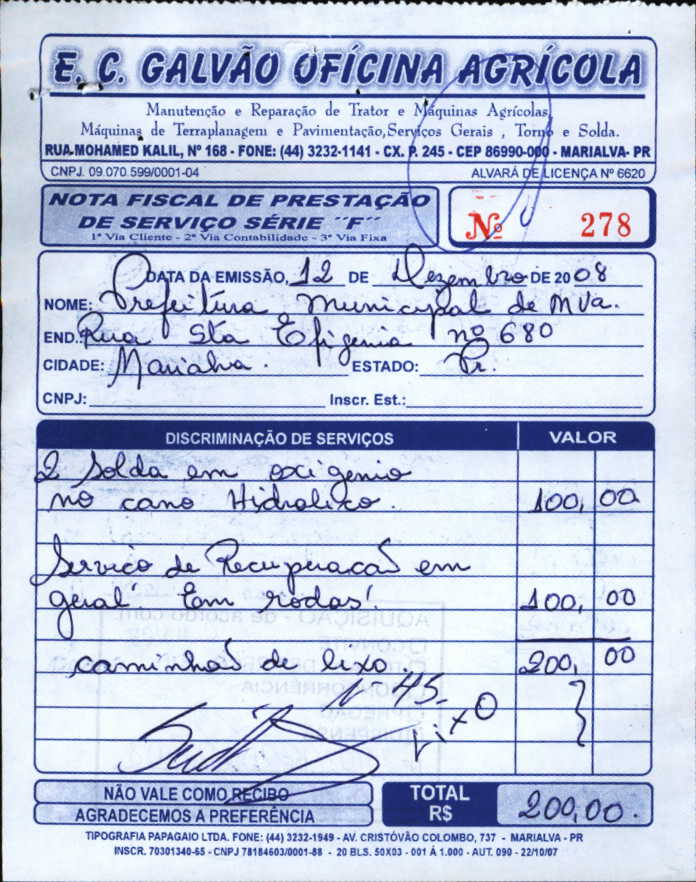 E. C. GALVÃO OFÍCINA AGRÍCOLA
Manutenção e Reparação de Trator e Máquinas Agrícolas,
Máquinas de Terraplanagem e Pavimentação,Serviços Gerais , Torno e Solda.
RUA-MOHAMED KALIL, Nº 168 - FONE: (44) 3232-1141 - CX. P. 245 - CEP 86990-000 - MARIALVA- PR
CNPJ. 09.070.599/0001-04 ALVARÁ DE LICENÇA Nº 6620
NOTA FISCAL DE PRESTAÇÃO
DE SERVIÇO SÉRIE ´´F´´
1ª Via Cliente - 2ª Via Contabilidade - 3ª Via Fixa
Nº 278
DATA DA EMISSÃO, 12 DE Dezembro DE 2008
NOME: Prefeitura Municipal de Mva.
END.: Rua Sta Efigenia nº 680
CIDADE: Marialva. ESTADO: Pr.
CNPJ: Inscr. Est.:
DISCRIMINAÇÃO DE SERVIÇOS VALOR
2 Solda em oxigenio
no cano Hidralico. 100,00
Serviço de Recuperação em
geral Em rodas 100,00
caminhão de lixo 200,00
Nº 45
LixO
NÃO VALE COMO RECIBO
AGRADECEMOS A PREFERÊNCIA
TOTAL R$ 200,00.
TIPOGRAFIA PAPAGAIO LTDA. FONE: (44) 3232-1949 - AV. CRISTÓVÃO COLOMBO, 737 - MARIALVA - PR
INSCR. 70301340-65 - CNPJ 78184603/0001-88 - 20 BLS. 50X03 - 001 Á 1.000 - AUT. 090 - 22/10/07